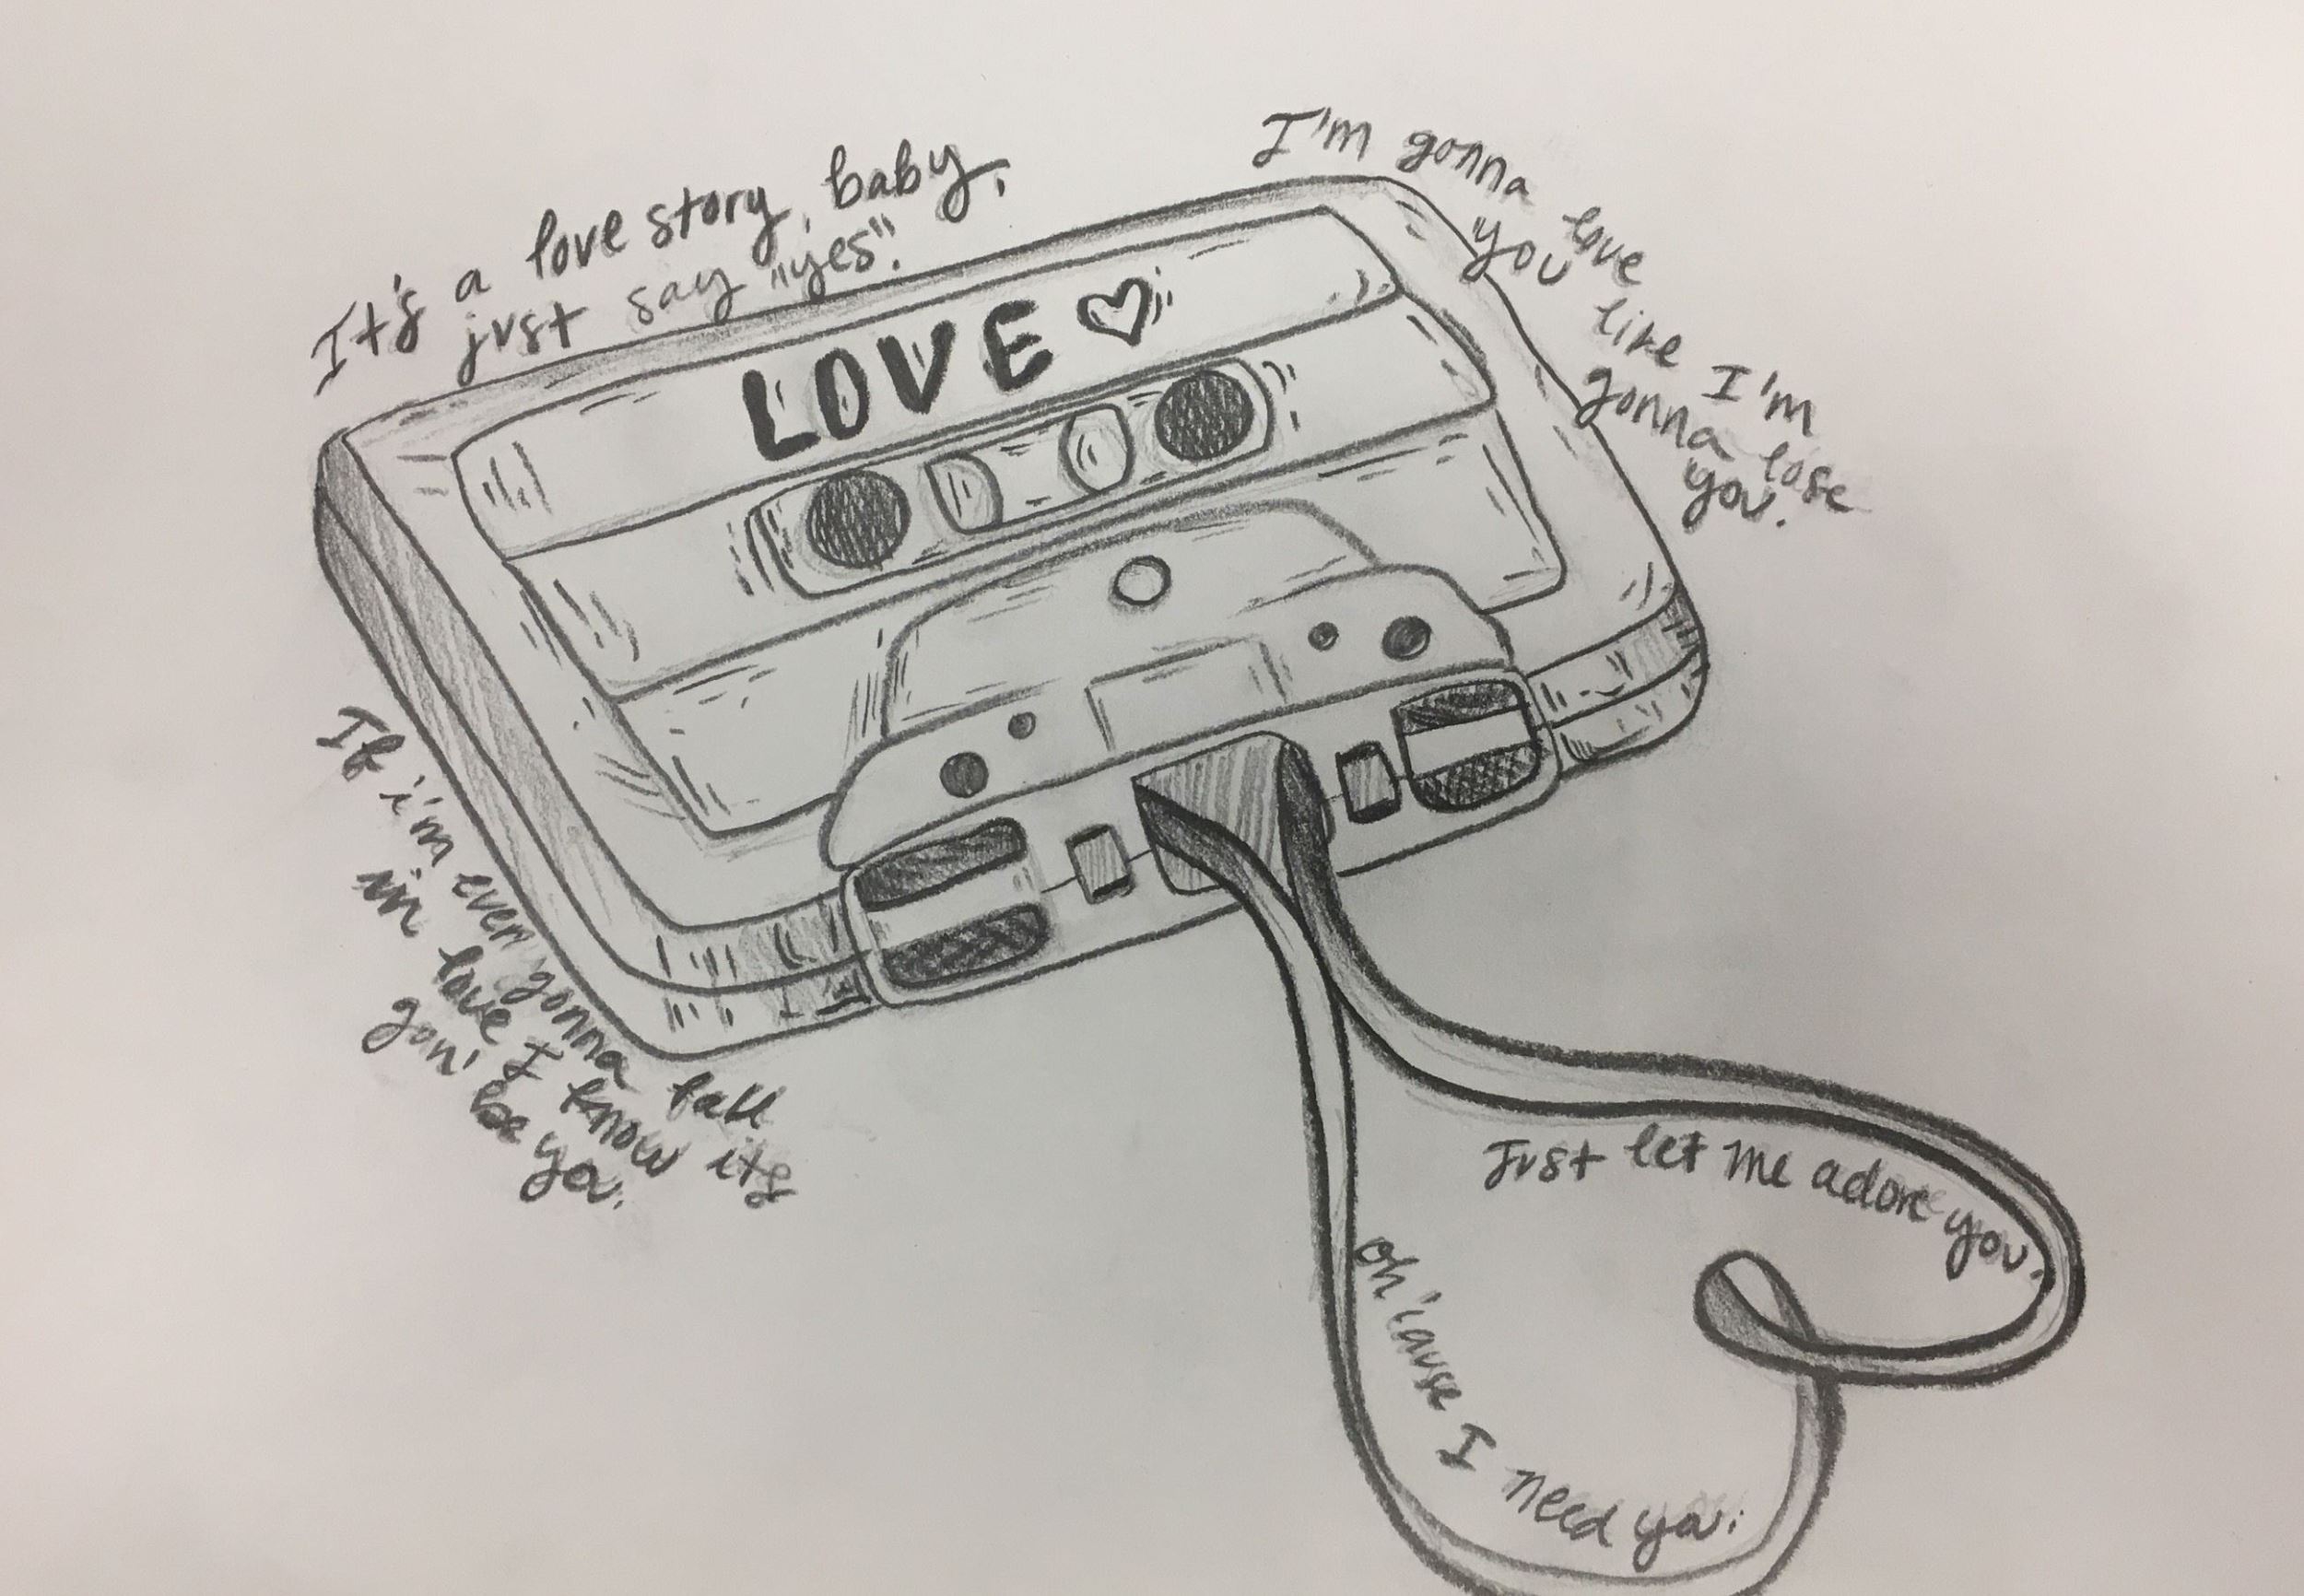 It's a love story, baby,
just say "yes".
I'm gonna love
you like I'm
gonna lose
you.
LOVE
If i'm ever gonna fall
in love I know its
gon' be you.
Just let me adore you.
Oh 'cause I need you.